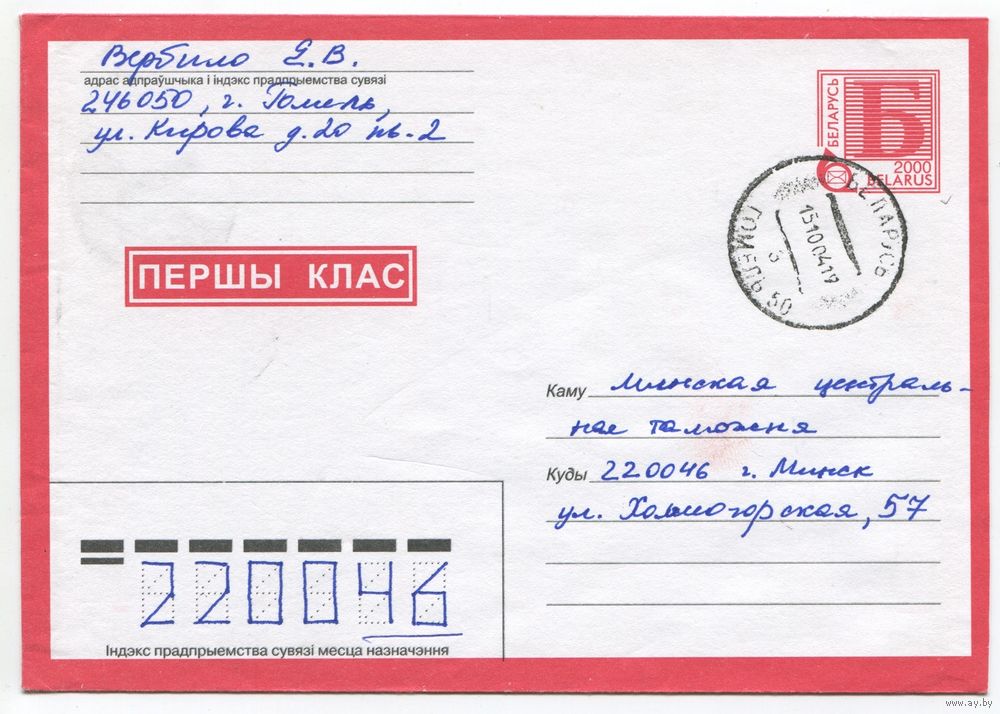 Вербило Е.В.
адрас адпраўшчыка і індэкс прадпрыемства сувязі
246050, г. Гомель,
ул. Кирова д.20 кв.2
БЕЛАРУСЬ
Б
2000
BELARUS
БЕЛАРУСЬ
ГОМЕЛЬ 50
15100419
ПЕРШЫ КЛАС
Каму Минская централь-
ная таможня
Куды 220046 г. Минск
ул. Холмогорская, 57
220046
Індэкс прадпрыемства сувязі месца назначэння
www.ay.by